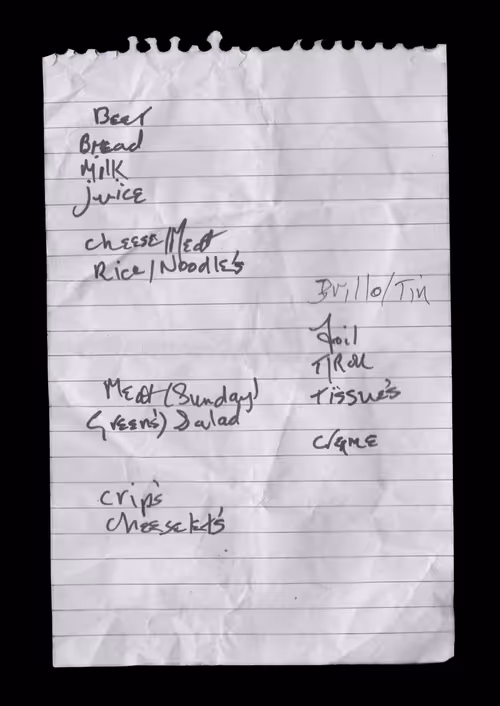 Beer
Bread
Milk
juice
cheese/Meat
Rice/Noodle's
Brillo/Tin
Foil
T/Roll
Tissue's
Meat (Sunday)
Green's) Salad
crip's